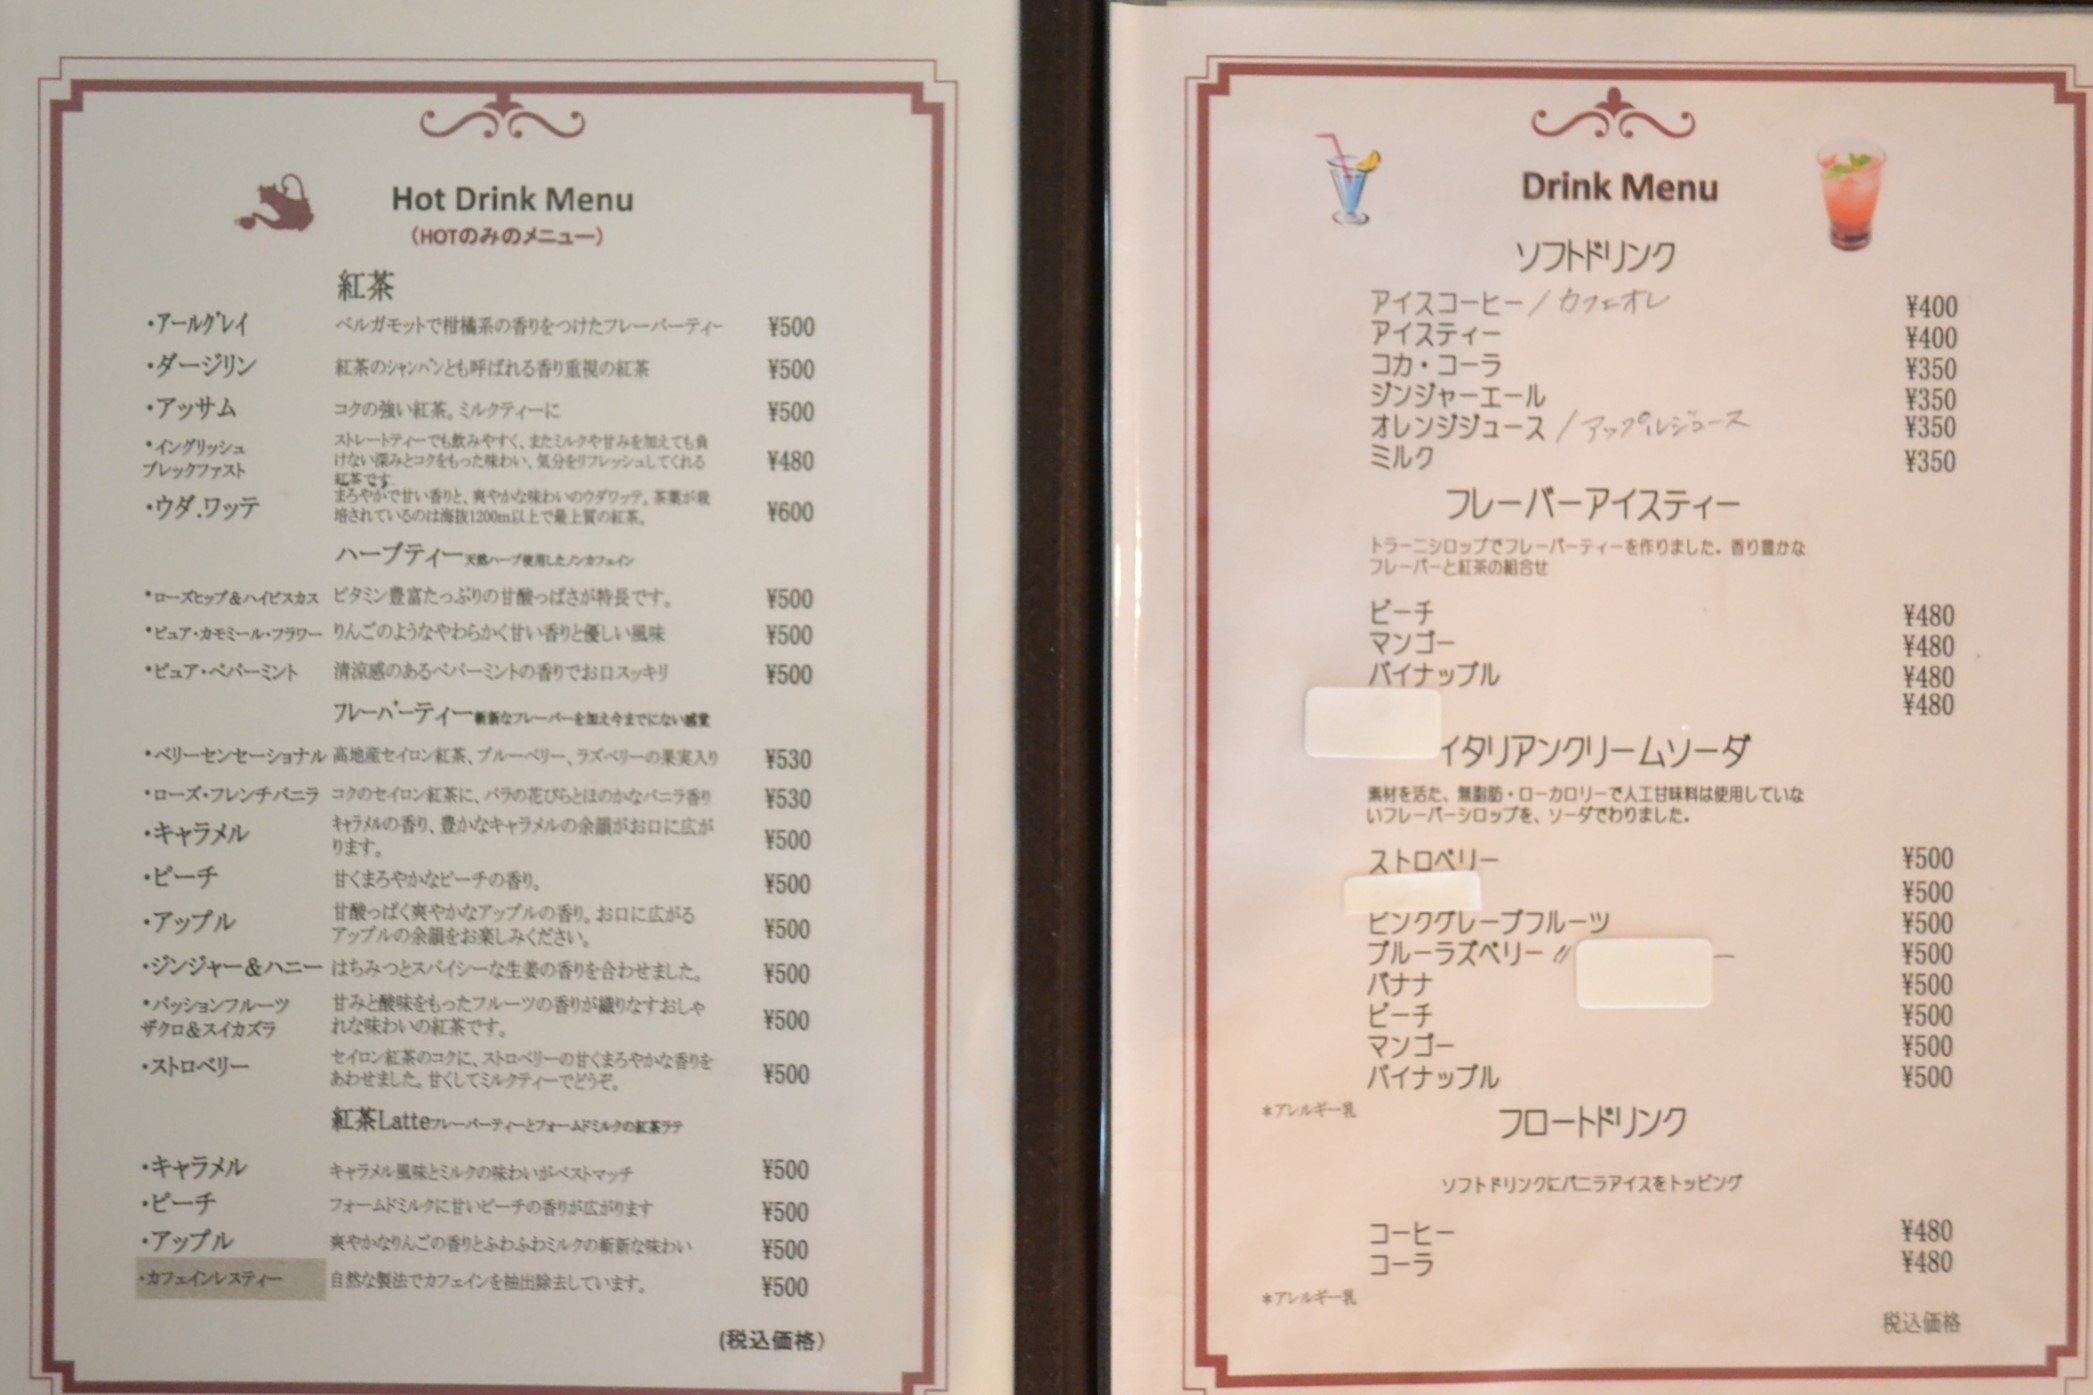 Hot Drink Menu
(HOTのみのメニュー)
紅茶
・アールグレイ ベルガモットで柑橘系の香りをつけたフレーバーティー ¥500
・ダージリン 紅茶のシャンパンとも呼ばれる香り重視の紅茶 ¥500
・アッサム コクの強い紅茶。ミルクティーに ¥500
・イングリッシュ
ブレックファスト
ストレートティーでも飲みやすく、またミルクや甘みを加えても負
けない深みとコクをもった味わい、気分をリフレッシュしてくれる
紅茶です。
¥480
・ウダ.ワッテ
まろやかで甘い香りと、爽やかな味わいのウダワッテ。茶葉が栽
培されているのは海抜1200m以上で最上質の紅茶。
¥600
ハーブティー天然ハーブ使用したノンカフェイン
・ローズヒップ&ハイビスカス ビタミン豊富たっぷりの甘酸っぱさが特長です。 ¥500
・ピュア・カモミール・フラワー りんごのようなやわらかく甘い香りと優しい風味 ¥500
・ピュア・ペパーミント 清涼感のあるペパーミントの香りでお口スッキリ ¥500
フレーバーティー斬新なフレーバーを加え今までにない感覚
・ベリーセンセーショナル 高地産セイロン紅茶、ブルーベリー、ラズベリーの果実入り ¥530
・ローズ・フレンチバニラ コクのセイロン紅茶に、バラの花びらとほのかなバニラ香り ¥530
・キャラメル
キャラメルの香り、豊かなキャラメルの余韻がお口に広が
ります。
¥500
・ピーチ 甘くまろやかなピーチの香り。 ¥500
・アップル
甘酸っぱく爽やかなアップルの香り。お口に広がる
アップルの余韻をお楽しみください。
¥500
・ジンジャー&ハニー はちみつとスパイシーな生姜の香りを合わせました。 ¥500
・パッションフルーツ
ザクロ&スイカズラ
甘みと酸味をもったフルーツの香りが織りなすおしゃ
れな味わいの紅茶です。
¥500
・ストロベリー
セイロン紅茶のコクに、ストロベリーの甘くまろやかな香りを
あわせました。甘くしてミルクティーでどうぞ。
¥500
紅茶Latteフレーバーティーとフォームドミルクの紅茶ラテ
・キャラメル キャラメル風味とミルクの味わいがベストマッチ ¥500
・ピーチ フォームドミルクに甘いピーチの香りが広がります ¥500
・アップル 爽やかなりんごの香りとふわふわミルクの斬新な味わい ¥500
・カフェインレスティー 自然な製法でカフェインを抽出除去しています。 ¥500
(税込価格)
Drink Menu
ソフトドリンク
アイスコーヒー / カフェオレ ¥400
アイスティー ¥400
コカ・コーラ ¥350
ジンジャーエール ¥350
オレンジジュース / アップルジュース ¥350
ミルク ¥350
フレーバーアイスティー
トラーニシロップでフレーバーティーを作りました。香り豊かな
フレーバーと紅茶の組合せ
ピーチ ¥480
マンゴー ¥480
パイナップル ¥480
¥480
イタリアンクリームソーダ
素材を活た、無脂肪・ローカロリーで人工甘味料は使用していな
いフレーバーシロップを、ソーダでわりました。
ストロベリー ¥500
¥500
ピンクグレープフルーツ ¥500
ブルーラズベリー 〃 ー ¥500
バナナ ¥500
ピーチ ¥500
マンゴー ¥500
パイナップル ¥500
＊アレルギー乳
フロートドリンク
ソフトドリンクにバニラアイスをトッピング
コーヒー ¥480
コーラ ¥480
＊アレルギー乳
税込価格